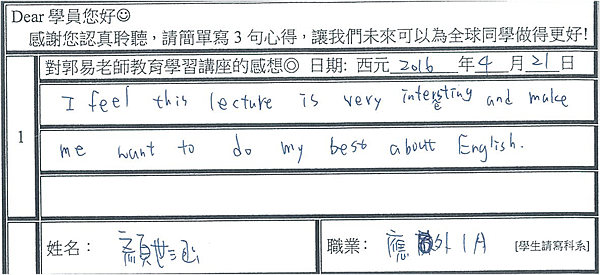 Dear 學員您好☺
感謝您認真聆聽，請簡單寫 3 句心得，讓我們未來可以為全球同學做得更好!
對郭易老師教育學習講座的感想◎ 日期: 西元 2016 年 4 月 21 日
1
I feel this lecture is very interesting and make
me want to do my best about English.
姓名： 顏世
職業： 應外1A [學生請寫科系]